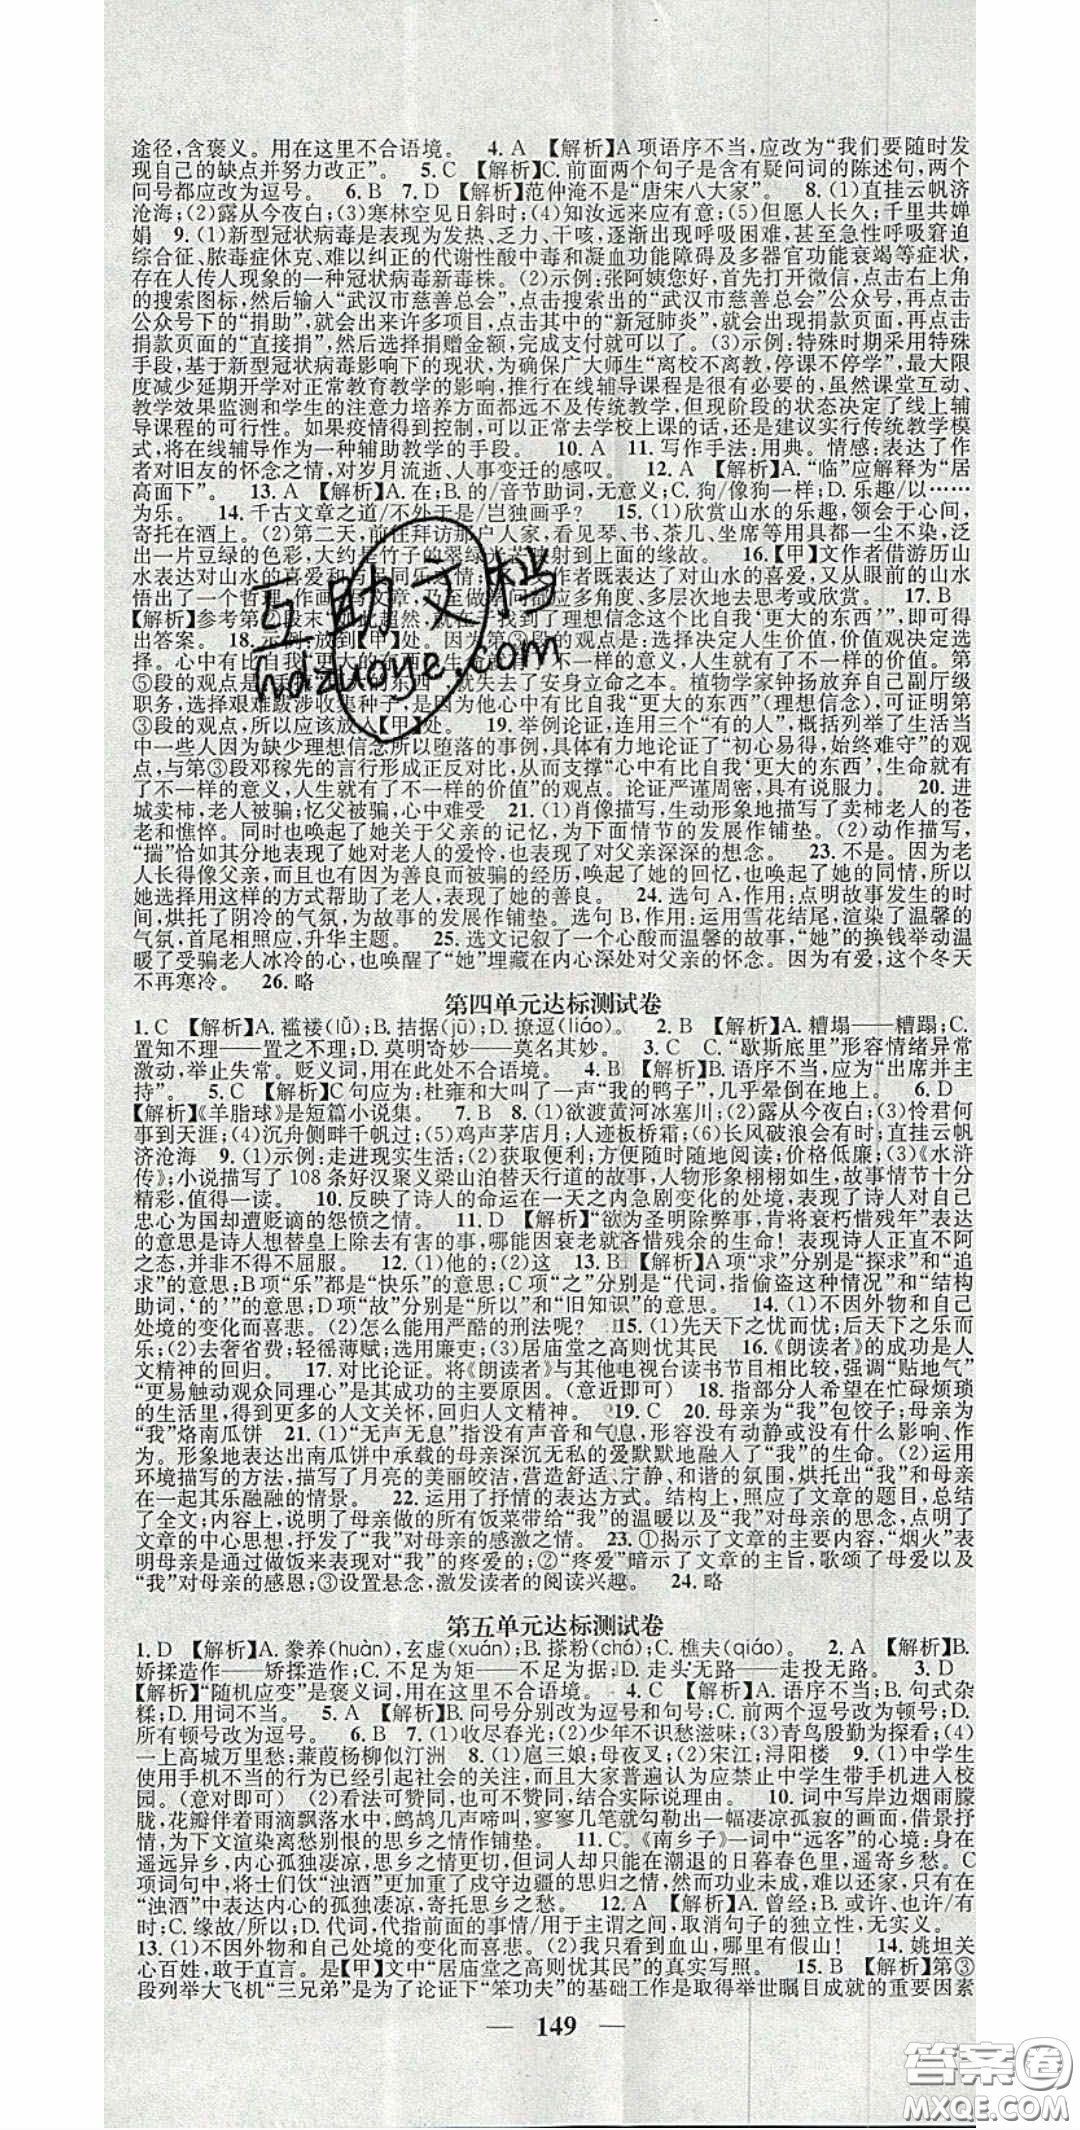 途径,含褒义。用在这里不合语境。 4. A 【解析】A项语序不当,应改为“我们要随时发
现自己的缺点并努力改正”。 5. C 【解析】C. 前面两个句子是含有疑问词的陈述句,两个
问号都应改为逗号。 6. B 7. D 【解析】范仲淹不是“唐宋八大家”。 8. (1)直挂云帆济
沧海;(2)露从今夜白;(3)寒林空见日斜时;(4)知汝远来应有意;(5)但愿人长久;千里共婵
娟 9. (1)新型冠状病毒是表现为发热、乏力、干咳,逐渐出现呼吸困难,甚至急性呼吸窘迫
综合征、脓毒症休克、难以纠正的代谢性酸中毒和凝血功能障碍及多器官功能衰竭等症状,
存在人传人现象的一种冠状病毒新毒株。(2)示例:张阿姨您好,首先打开微信,点击右上角
的搜索图标,然后输入“武汉市慈善总会”,点击搜索出的“武汉市慈善总会”公众号,再点击
公众号下的“捐助”,就会出来许多项目,点击其中的“新冠肺炎”,就会出现捐款页面,再点击
捐款页面的“直接捐”,然后选择捐赠金额,完成支付就可以了。(3)示例:特殊时期采用特殊
手段,基于新型冠状病毒影响下的现状,为确保广大师生“离校不离教,停课不停学”,最大限
度减少延期开学对正常教育教学的影响,推行在线辅导课程是很有必要的,虽然课堂互动、
教学效果监测和学生的注意力培养方面都远不及传统教学,但现阶段的状态决定了线上辅
导课程的可行性。如果疫情得到控制,可以正常去学校上课的话,还是建议实行传统教学模
式,将在线辅导作为一种辅助教学的手段。 10. A 11. 写作手法:用典。情感:表达了作
者对旧友的怀念之情,对岁月流逝、人事变迁的感叹。 12. A 【解析】A. “临”应解释为“居
高面下”。 13. A 【解析】A. 在;B. 的/音节助词,无意义;C. 狗/像狗一样;D. 乐趣/以……
为乐。 14. 千古文章之道/不外于是/岂独画乎? 15. (1)欣赏山水的乐趣,领会于心间,
寄托在酒上。(2)第二天,前往拜访那户人家,看见琴、书、茶几、坐席等用具都一尘不染,泛
出一片豆绿的色彩,大约是竹子的翠绿光芒映射到上面的缘故。 16.【甲】文作者借游历山
水表达对山水的喜爱和与民同乐之情;作者既表达了对山水的喜爱,又从眼前的山水
悟出了一个哲理,作画与文章,乃至做学问都应多角度、多层次地去思考或欣赏。 17. B
【解析】参考第②段末“如此超然,就在于找到了理想信念这个比自我‘更大的东西’”,即可得
出答案。 18. 示例:放到【甲】处。因为第③段的观点是:选择决定人生价值,价值观决定选
择。心中有比自我“更大的东西”,生命就有了不一样的意义,人生就有了不一样的价值。第
⑤段的观点是:丢掉“更大的东西”,就失去了安身立命之本。植物学家钟扬放弃自己副厅级
职务,选择艰难跋涉收集种子,是因为他心中有比自我“更大的东西”(理想信念),可证明第
③段的观点,所以应该放入【甲】处。 19. 举例论证,连用三个“有的人”,概括列举了生活当
中一些人因为缺少理想信念所以堕落的事例,具体有力地论证了“初心易得,始终难守”的观
点,与第③段邓稼先的言行形成正反对比,从而支撑“心中有比自我‘更大的东西’,生命就有
了不一样的意义,人生就有了不一样的价值”的观点。论证严谨周密,具有说服力。 20. 进
城卖柿,老人被骗;忆父被骗,心中难受 21. (1)肖像描写,生动形象地描写了卖柿老人的苍
老和憔悴。同时也唤起了她关于父亲的记忆,为下面情节的发展作铺垫。(2)动作描写,
“揣”恰如其分地表现了她对老人的爱怜,也表现出了对父亲深深的想念。 23. 不是。因为老
人长得像父亲,而且也有因善良而被骗的经历,唤起了她的回忆,也唤起了她的同情,所以
她选择用这样的方式帮助了老人,表现了她的善良。 24. 选句A,作用:点明故事发生的时
间,烘托了阴冷的气氛,为故事的发展作铺垫。选句B,作用:运用雪花结尾,渲染了温馨的
气氛,首尾相照应,升华主题。 25. 选文记叙了一个心酸而温馨的故事,“她”的换钱举动温
暖了受骗老人冰冷的心,也唤醒了“她”埋藏在内心深处对父亲的怀念。因为有爱,这个冬天
不再寒冷。 26. 略
第四单元达标测试卷
1. C 【解析】A. 褴褛(lǚ);B. 拮据(jū);D. 撩逗(liáo)。 2. B 【解析】A. 糟塌——糟蹋;C.
置知不理——置之不理;D. 莫明奇妙——莫名其妙。 3. C C. “歇斯底里”形容情绪异常
激动,举止失常。贬义词,用在此处不合语境。 4. B 【解析】B. 语序不当,应为“出席并主
持”。 5. C 【解析】C句应为:杜雍和大叫了一声“我的鸭子”,几乎晕倒在地上。 6. D
【解析】《羊脂球》是短篇小说集。 7. B 8. (1)欲渡黄河冰塞川;(2)露从今夜白;(3)怜君何
事到天涯;(4)沉舟侧畔千帆过;(5)鸡声茅店月;人迹板桥霜;(6)长风破浪会有时;直挂云帆
济沧海 9. (1)示例:走进现实生活;(2)获取便利;方便随时随地阅读;价格低廉;(3)《水浒
传》;小说描写了108条好汉聚义梁山泊替天行道的故事,人物形象栩栩如生,故事情节十分
精彩,值得一读。 10. 反映了诗人的命运在一天之内急剧变化的处境,表现了诗人对自己
忠心为国却遭贬谪的怨愤之情。 11. D 【解析】“欲为圣明除弊事,肯将衰朽惜残年”表达
的意思是诗人想替皇上除去有害的事,哪能因衰老就吝惜残余的生命!表现诗人正直不阿
之态,并非不得不屈服。 12. (1)他的;(2)这 13. B 【解析】A项“求”分别是“探求”和“追
求”的意思;B项“乐”都是“快乐”的意思;C项“之”分别是“代词,指偷盗这种情况”和“结构
助词,‘的’”的意思;D项“故”分别是“所以”和“旧知识”的意思。 14. (1)不因外物和自己
处境的变化而喜悲。(2)怎么能用严酷的刑法呢? 15. (1)先天下之忧而忧;后天下之乐而
乐;(2)去奢省费;轻徭薄赋;选用廉吏;(3)居庙堂之高则忧其民 16.《朗读者》的成功是人
文精神的回归。 17. 对比论证。将《朗读者》与其他电视台读书节目相比较,强调“贴地气”
“更易触动观众同理心”是其成功的主要原因。(意近即可) 18. 指部分人希望在忙碌烦琐
的生活里,得到更多的人文关怀,回归人文精神。 19. C 20. 母亲为“我”包饺子;母亲为
“我”烙南瓜饼 21. (1)“无声无息”指没有声音和气息,形容没有动静或没有什么影响、作
为。形象地表达出南瓜饼中承载的母亲深沉无私的爱默默地融入了“我”的生命。(2)运用
环境描写的方法,描写了月亮的美丽皎洁,营造舒适、宁静、和谐的氛围,烘托出“我”和母亲
在一起其乐融融的情景。 22. 运用了抒情的表达方式。结构上,照应了文章的题目,总结
了全文;内容上,说明了母亲做的所有饭菜带给“我”的温暖以及“我”对母亲的思念,点明了
文章的中心思想,抒发了“我”对母亲的感激之情。 23. ①揭示了文章的主要内容,“烟火”表
明母亲是通过做饭来表现对“我”的疼爱的;②“疼爱”暗示了文章的主旨,歌颂了母爱以及
“我”对母亲的感恩;③设置悬念,激发读者的阅读兴趣。 24. 略
第五单元达标测试卷
1. D 【解析】A. 豢养(huàn),玄虚(xuán);B. 搽粉(chá);C. 樵夫(qiáo)。 2. A 【解析】B.
娇揉造作——矫揉造作;C. 不足为矩——不足为据;D. 走头无路——走投无路。 3. D
【解析】“随机应变”是褒义词,用在这里不合语境。 4. C 【解析】A. 语序不当;B. 句式杂
糅;D. 用词不当。 5. A 【解析】B. 问号分别改为逗号和句号;C. 前两个逗号改为顿号;D.
所有顿号改为逗号。 6. B 7. (1)收尽春光;(2)少年不识愁滋味;(3)青鸟殷勤为探看;(4)
一上高城万里愁;蒹葭杨柳似汀洲 8. (1)扈三娘;母夜叉;(2)宋江;浔阳楼 9. (1)中学生
使用手机不当的行为已经引起社会的关注,而且大家普遍认为应禁止中学生带手机进入校
园。(意对即可) (2)看法可赞同,也可不赞同,结合实际说理由。 10. 词中写岸边烟雨朦
胧,花瓣伴着雨滴飘落水中,鹧鸪几声啼叫,寥寥几笔就勾勒出一幅凄凉孤寂的画面,借景抒
情,为下文渲染离愁别恨的思乡之情作铺垫。 11. C。《南乡子》一词中“远客”的心境:身在
遥远异乡,内心孤独凄凉,思乡之情更切,但词人却只能在潮退的日暮春色里,遥寄乡愁。C
项词句中,将士们饮“浊酒”更加重了戍守边疆的思归之情,然而功业未成,难以还家,只有在
“浊酒”中表达内心的孤独凄凉,寄托思乡之愁。 12. A 【解析】A. 曾经;B. 或许、也许/有
时;C. 缘故/所以;D. 代词,代指前面的事情/用于主谓之间,取消句子的独立性,无实义。
13. (1)不因外物和自己处境的变化而喜悲。(2)我只看到血山,哪里有假山! 14. 姚坦关
心百姓,敢于直言进谏,是【甲】文中“居庙堂之高则忧其民”的真实写照。 15. B 【解析】第③
段列举大飞机“三兄弟”是为了论证下“笨功夫”的基础工作是取得举世瞩目成就的重要因素
— 149 —
互助文档
hdzuoye.com
答案圈
MXQE.COM